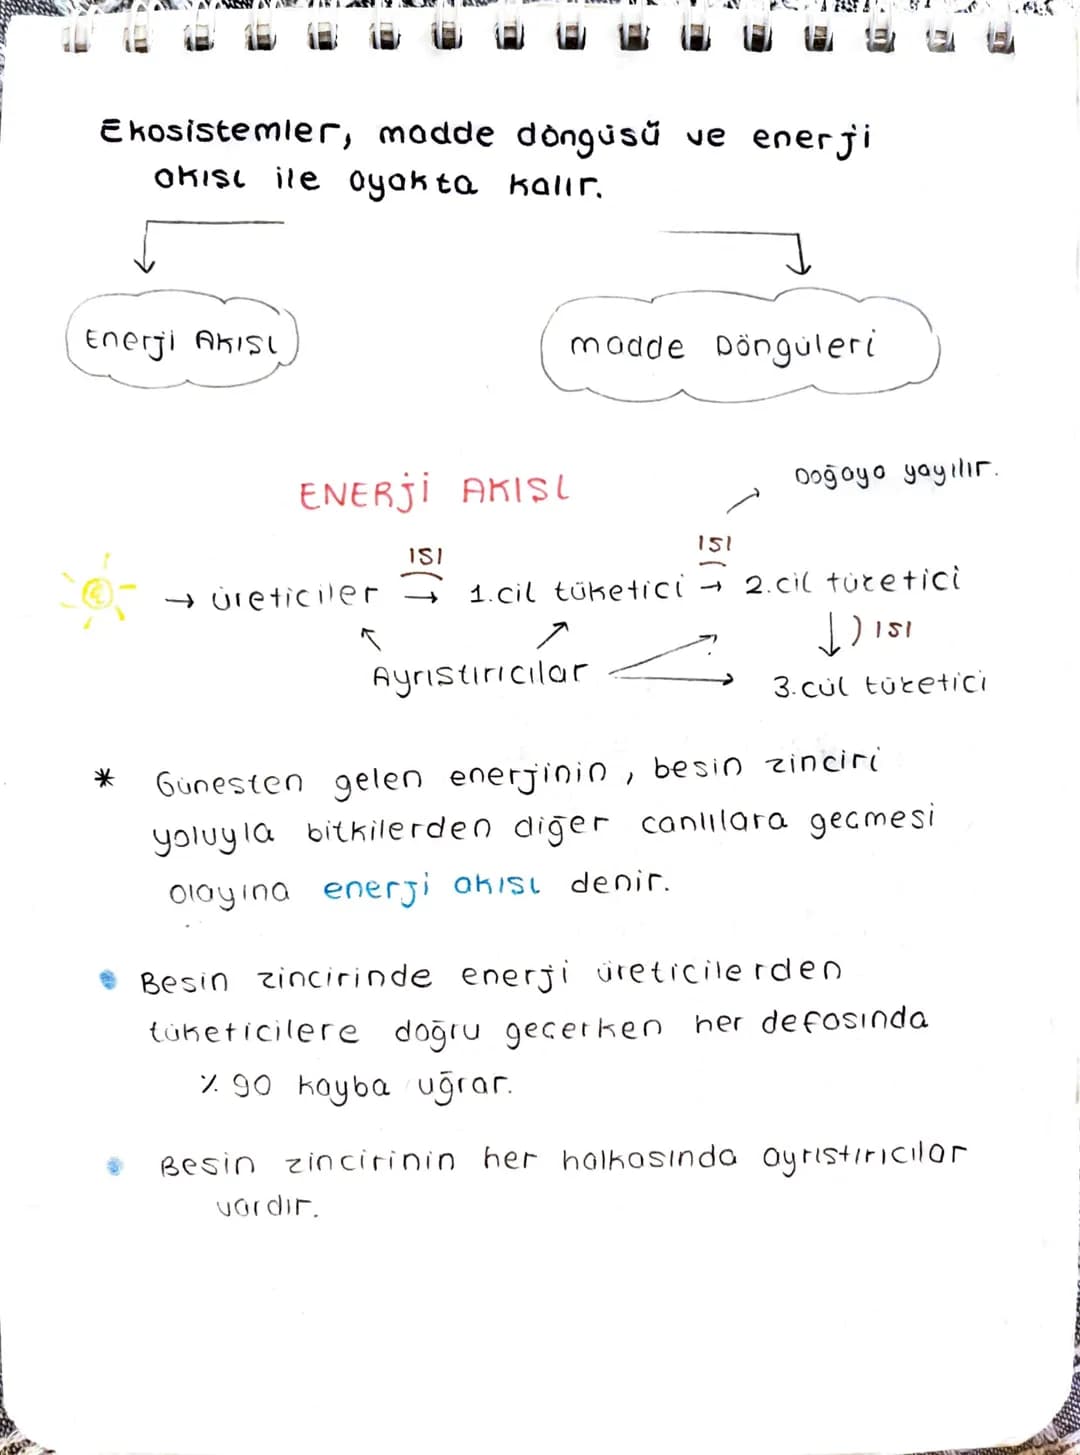 Ekosistemler, madde döngüsü ve enerji
akısı ile ayakta kalır.
Enerji Akısı
madde Döngüleri
ENERJİ AKISI
Doğaya yayılır.
ısı
ısı
→ üreticiler → 1.cil tüketici → 2.cil tüketici
ısı
Ayrıstırıcılar
3.cül tüketici
* Günesten gelen enerjinin, besin zinciri
yoluyla bitkilerden diğer canlılara gecmesi
olayına enerji akısı denir.
Besin zincirinde enerji üreticilerden
tüketicilere doğru gecerken her defasında
% 90 kayba uğrar.
Besin zincirinin her halkasında ayrıstırıcılar
vardır.